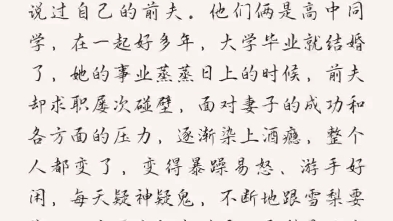 说过自己的前夫。他们俩是高中同
学，在一起好多年，大学毕业就结婚
了，她的事业蒸蒸日上的时候，前夫
却求职屡次碰壁，面对妻子的成功和
各方面的压力，逐渐染上酒瘾，整个
人都变了，变得暴躁易怒、游手好
闲，每天疑神疑鬼，不断地跟雪梨要